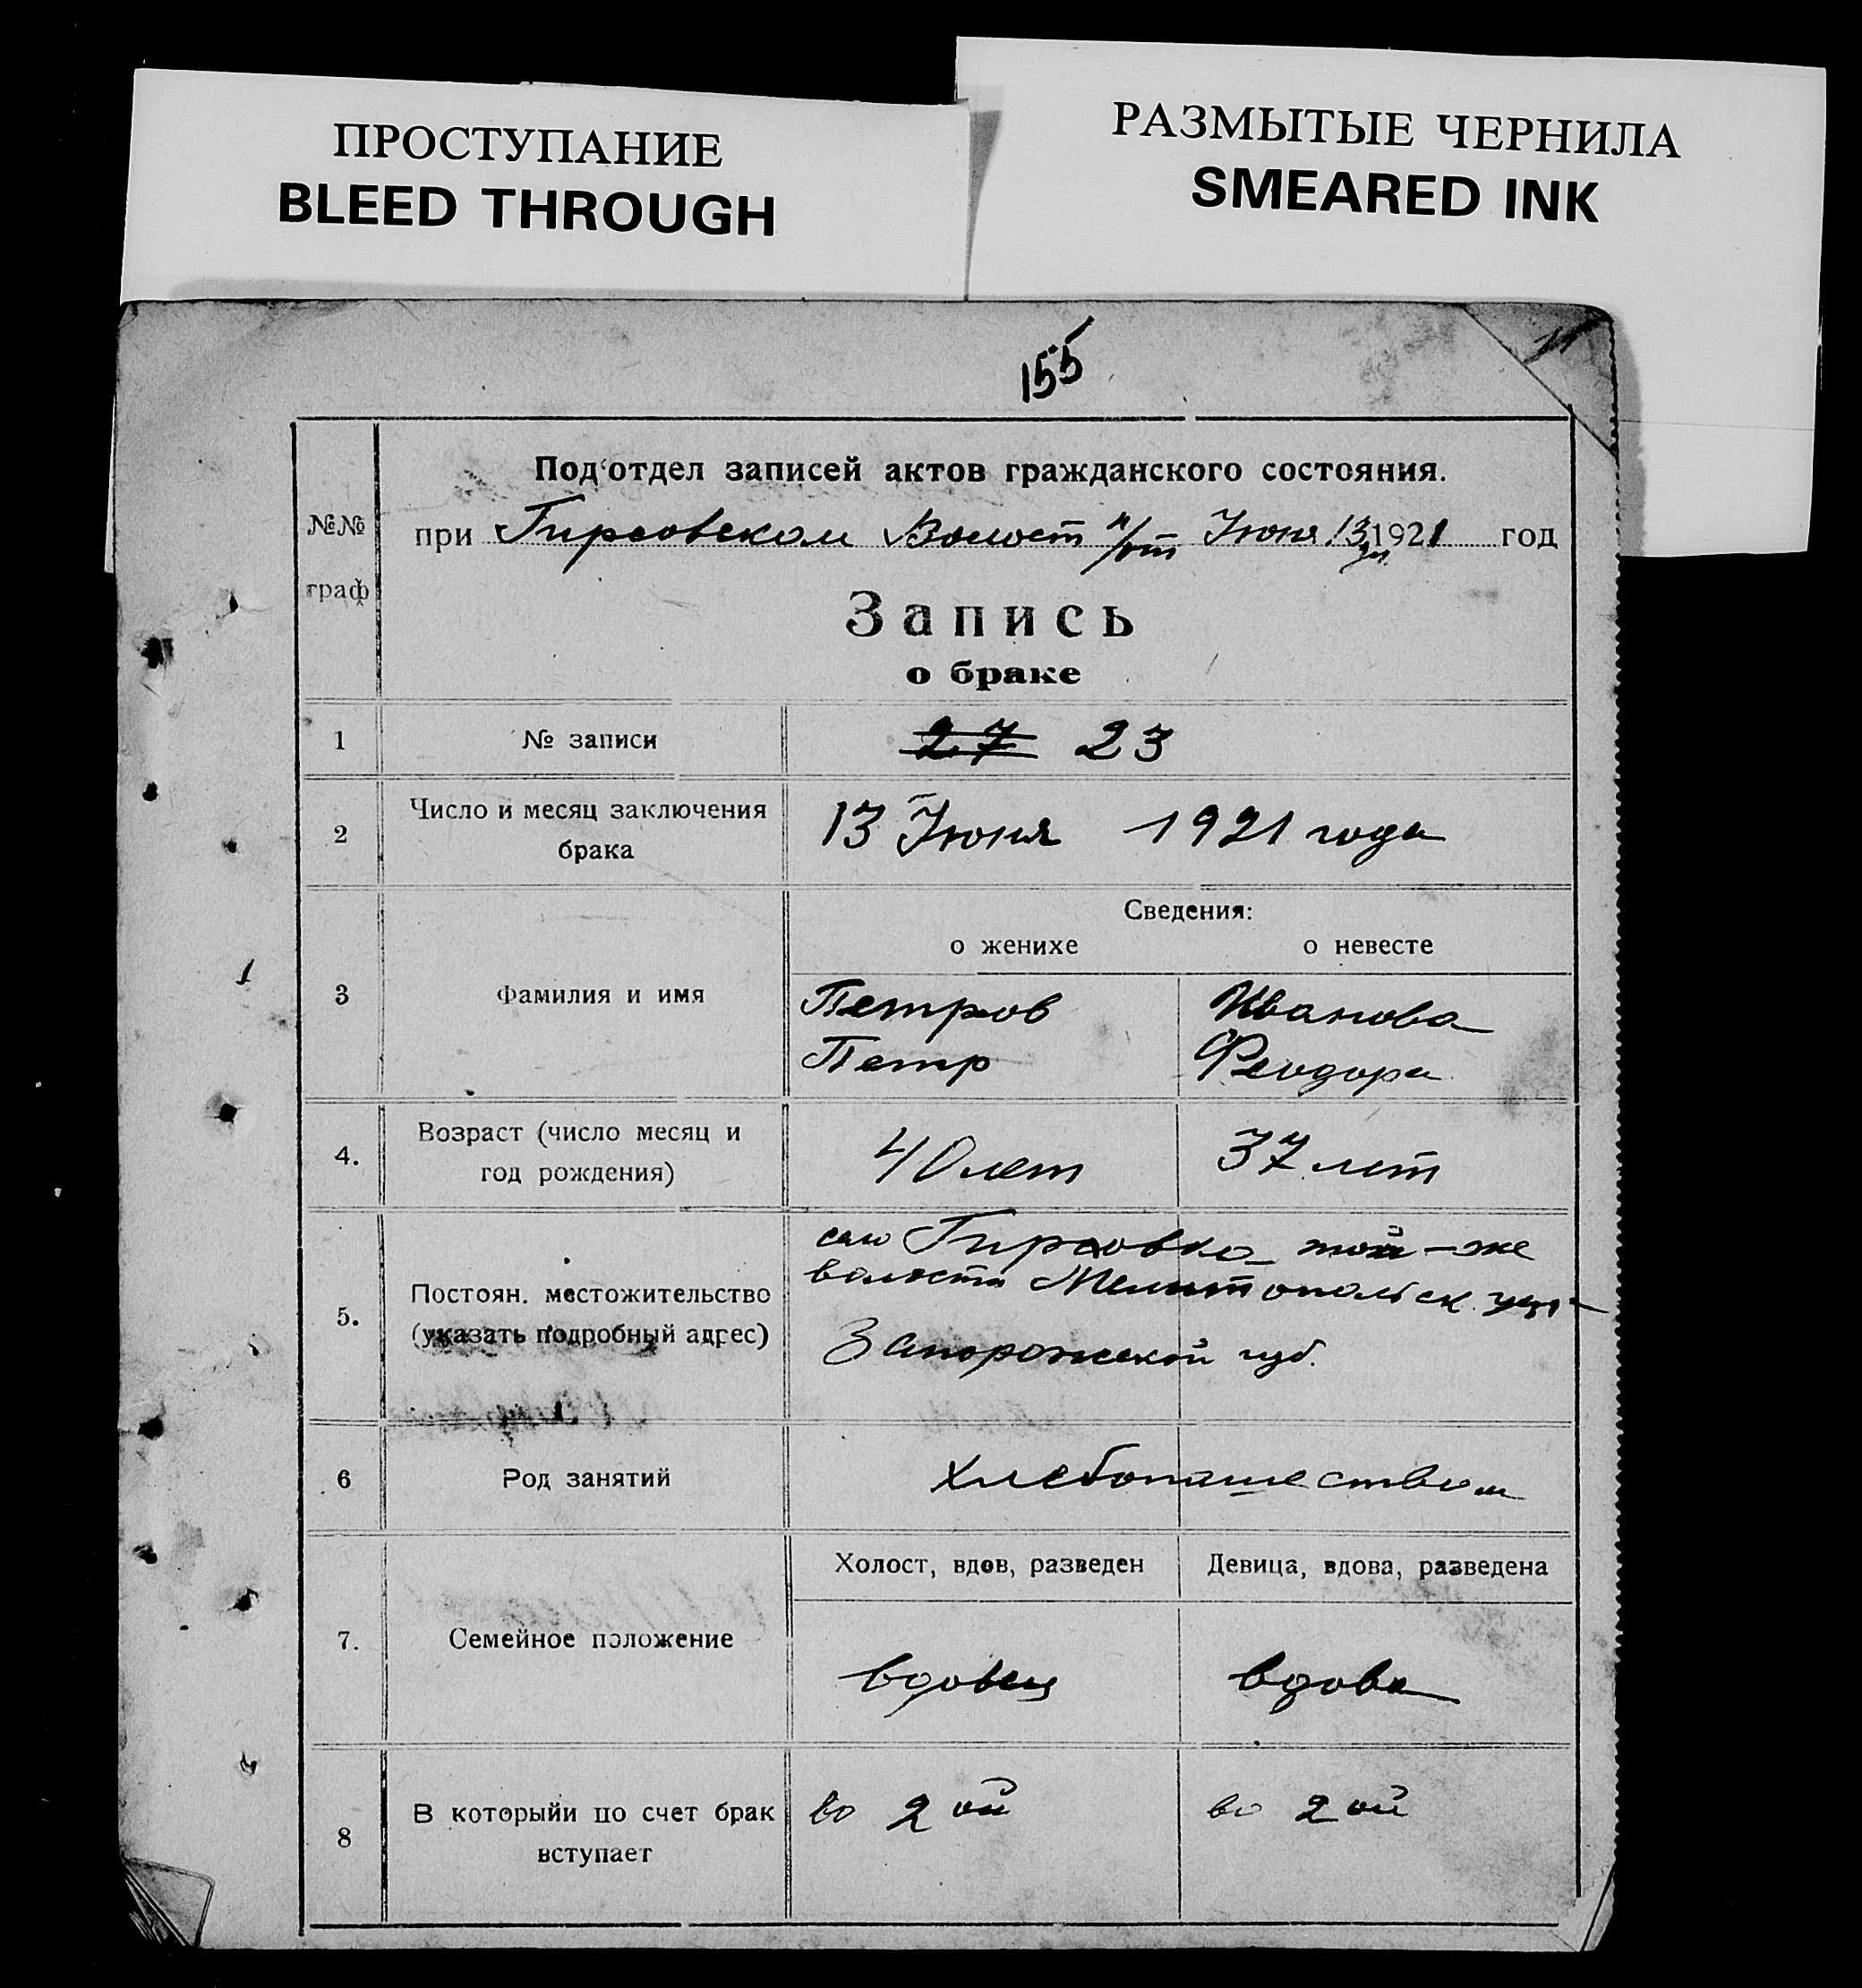 ПРОСТУПАНИЕ
BLEED THROUGH
РАЗМЫТЫЕ ЧЕРНИЛА
SMEARED INK
155
11
№№
граф
Под'отдел записей актов гражданского состояния.
при Гирсовском Волост Июня 13 1921 год
Запись
о браке
1 № записи 27 23
2 Число и месяц заключения
брака
13 Июня 1921 года
Сведения:
о женихе о невесте
3 Фамилия и имя
Петров Иванова
Петр Феодора
4. Возраст (число месяц и
год рождения)
40 лет 37 лет
5. Постоян. местожительство
(указать подробный адрес)
село Гирсовка той-же
волости Мелитопольск. уез-
Запорожской губ.
6 Род занятий хлебопашеством
Холост, вдов, разведен Девица, вдова, разведена
7. Семейное положение
вдовец вдова
8 В которыйи по счет брак
вступает
во 2ой во 2ой
1